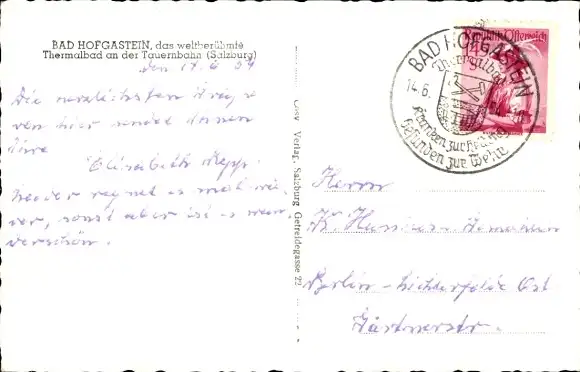 BAD HOFGASTEIN, das weltberühmte
Thermalbad an der Tauernbahn (Salzburg)
den 14.6.54
Die herzlichsten Grüße
von hier sendet Ihnen
Ihre
Elisabeth
Leider regnet es mal wie-
der, sonst aber ist es wun-
derschön.
Cosy Verlag, Salzburg, Getreidegasse 22
Republik Österreich
BAD HOFGASTEIN
Thermalbad
14.6.
Kranken zur Heilung
Gesunden zur Wehr
Herrn
Berlin-Lichterfelde Ost
Gärtnerstr.